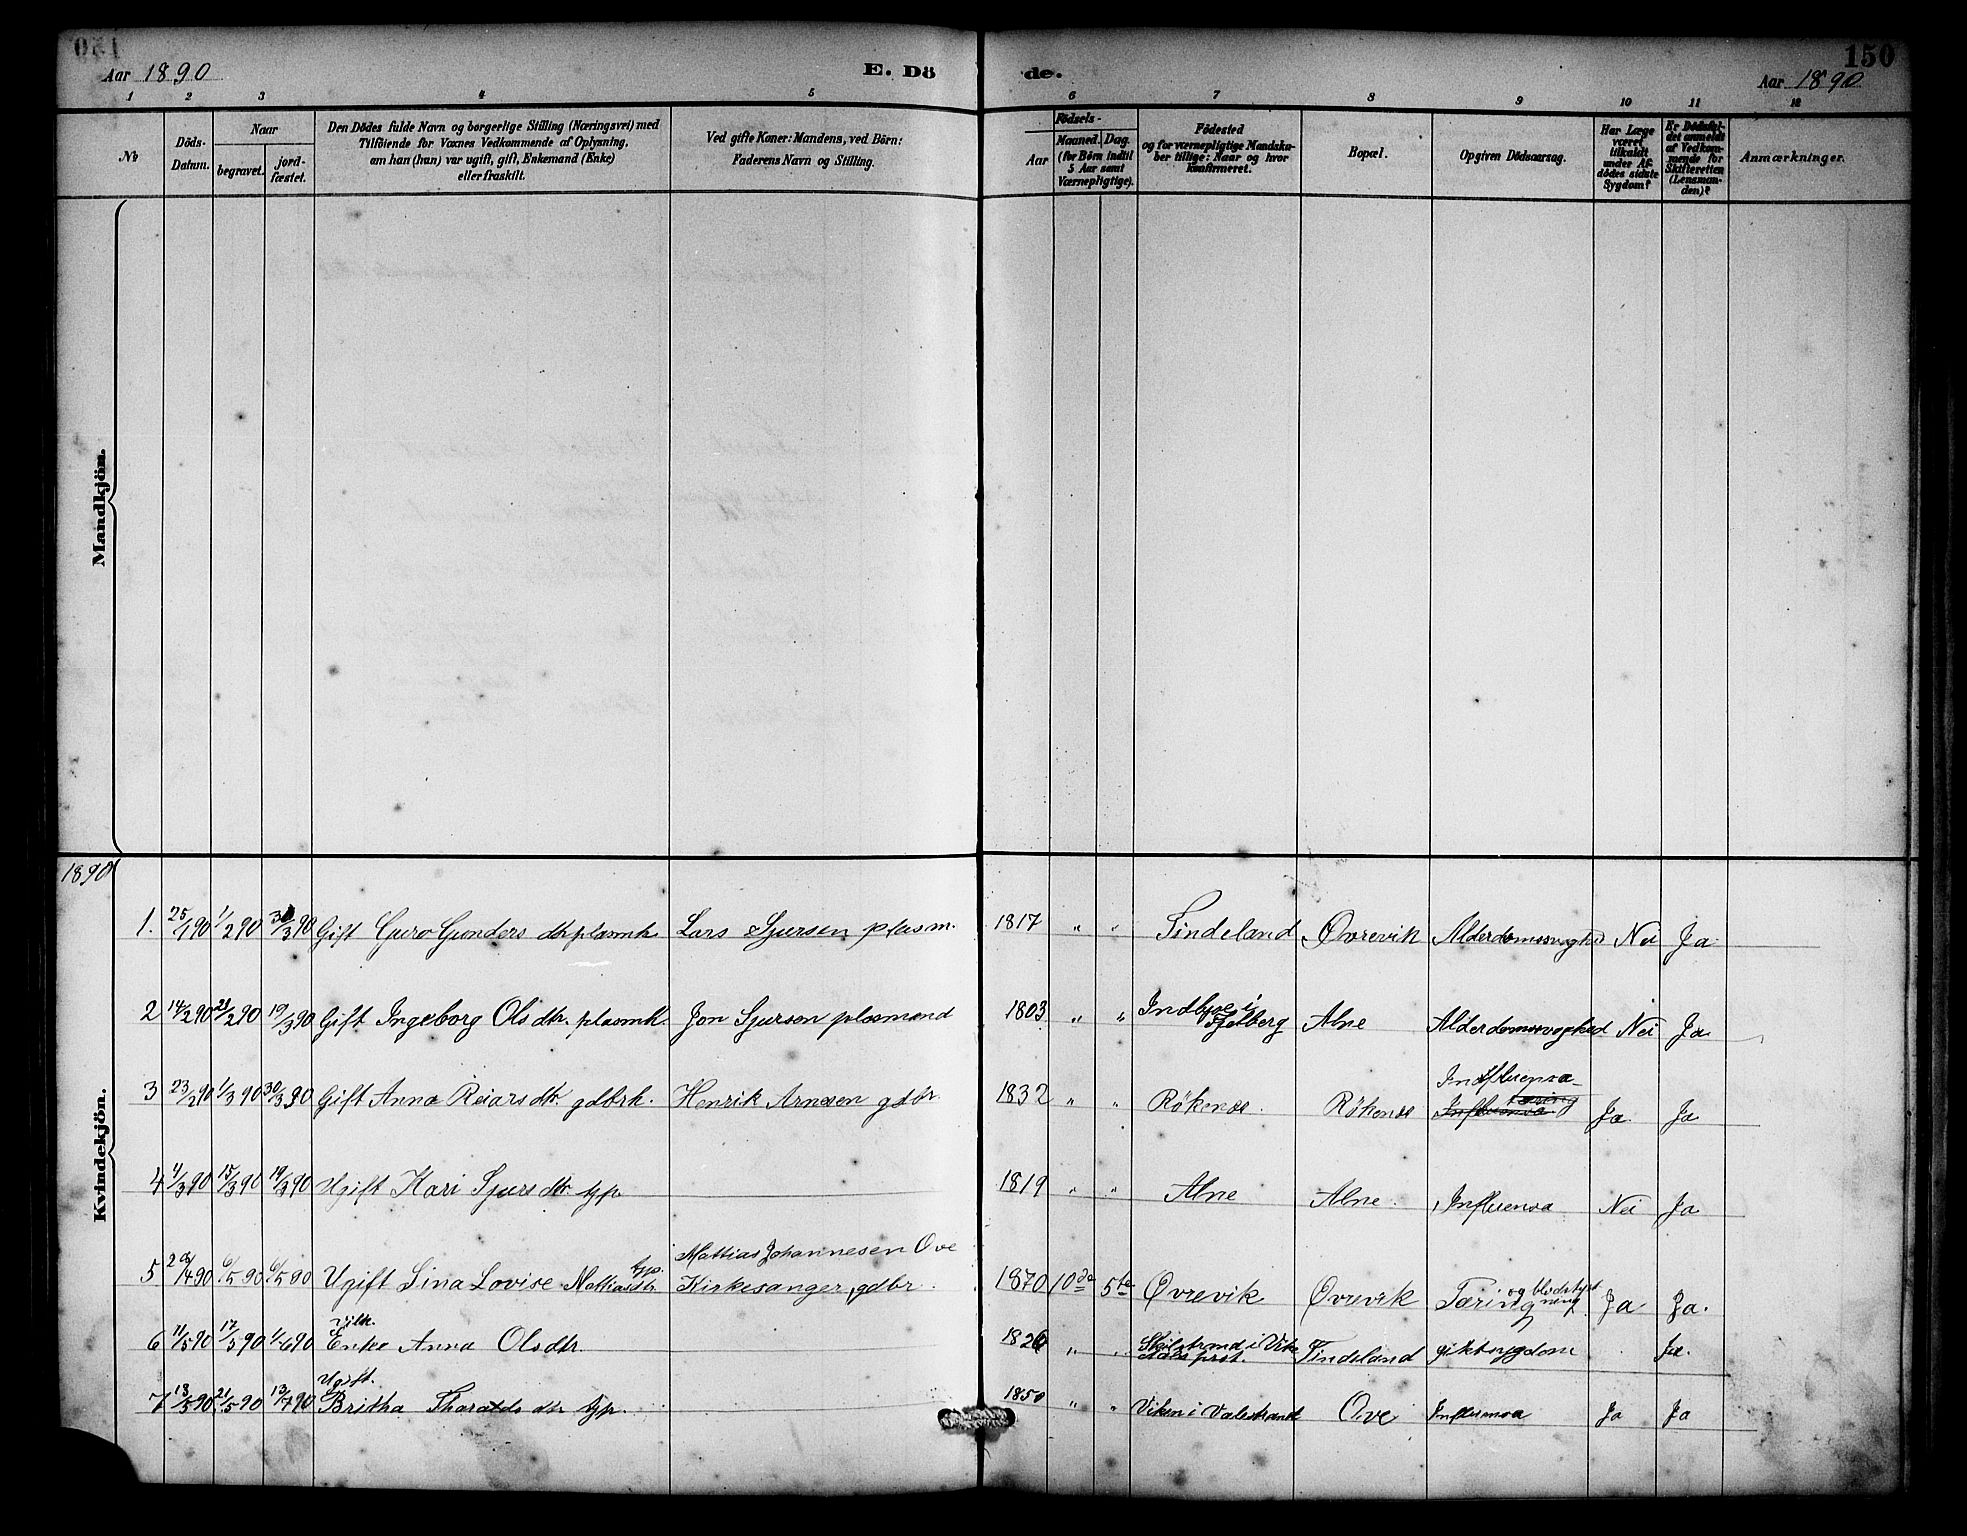 150
Aar 1890
E. Dö
de.
Aar 1890
1 2 3 4 5 6 7 8 9 10 11 12
No
Döds-
Datum.
Naar
begravet.
jord-
fæstet.
Den Dödes fulde Navn og borgerlige Stilling (Næringsvei) med
Tilföiende for Voxnes Vedkommende af Oplysning,
om han (hun) var ugift, gift, Enkemand (Enke)
eller fraskilt.
Ved gifte Koner: Mandens, ved Börn:
Faderens Navn og Stilling.
Födsels-
Aar
Maaned. Dag.
(for Börn indtil
5 Aar samt
Værnepligtige).
Födested
og for værnepligtige Mandska-
ber tillige: Naar og hvor
konfirmeret.
Bopæl.
Opgiven Dödsaarsag.
Har Læge
været
tilkaldt
under Af-
dödes sidste
Sygdom?
Er Dödsfal-
det anmeldt
af Vedkom-
mende for
Skifteretten
(Lensman-
den)?
Anmærkninger.
Mandkjön.
Kvindekjön.
1890
1. 25/1 90 1/2 90 30/3 90 Gift Guro Gunders dtr plasmk. Lars Sjursen plasm. 1817 " " Tindeland Øvrevik Alderdomssvaghed Nei Ja
2 14/2 90 23/2 90 19/3 90 Gift Ingeborg Ols dtr. plasmk. Jon Sjursen plasmand 1803 " " Indbjoe i
Fjelberg Alne Alderdomssvaghed Nei Ja
3 23/2 90 1/3 90 30/3 90 Gift Anna Reiarsdtr. gdbrk. Henrik Arnesen gdbr. 1832 " " Rökenæs. Rökenæs Influensa
Influensa tæring Ja Ja
4 4/3 90 15/3 90 19/3 90 Ugift Kari Sjursdtr. tjp. 1819 " " Alne Alne. Influensa Nei Ja
Mattias Johannesen Ove
5 4 90 6/5 90 6/5 90 Ugift Sina Lovise Mattiasdtr. tjp. Kirkesanger, gdbr. 1870 10de 5te Øvrevik Øvrevik Tæring og blodstyrt
ning Ja Ja.
6 11/5 90 17/5 90 1/6 90 Enke Anna Olsdtr 1826 " " i Vike
prst. Tindeland giktsygdom Ja.
Ugift.
7 18/5 90 21/5 90 13/7 90 Britha Tharalds dtr tjp. 1850 " " Viken i Valestrand Ove Influensa Ja Ja